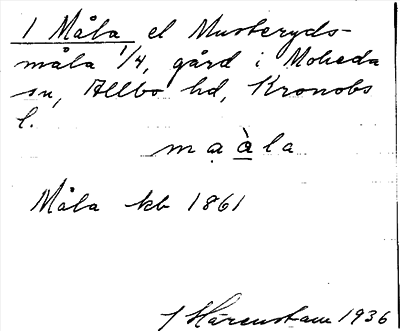 1 Måla el Musteryds-
måla 1/4, gård i Moheda
sn, Allbo hd, Kronobs
l.
mạàla
Måla kb 1861
J Härenstam 1936